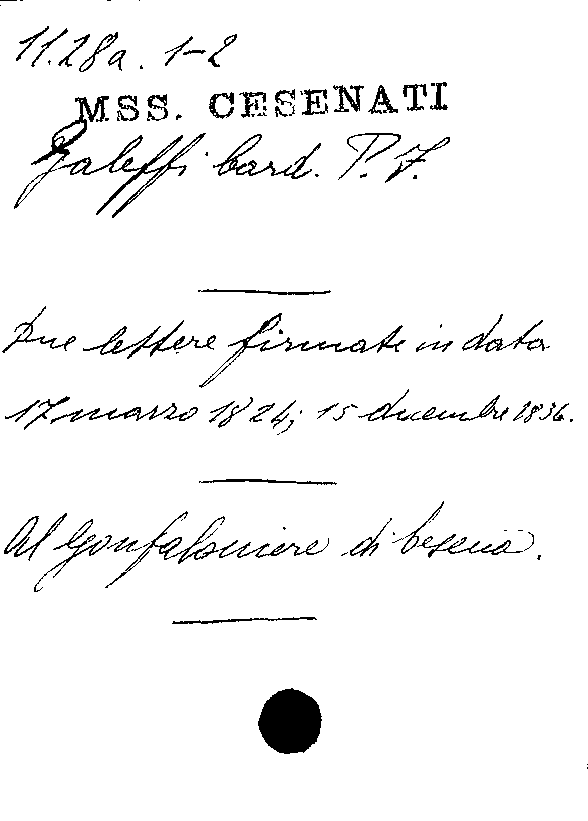 11.28a. 1-2
MSS. CESENATI
Galeffi Card. P. F.
Due lettere firmate in data
17 marzo 1824; 15 dicembre 1836.
Al Gonfaloniere di Cesena.